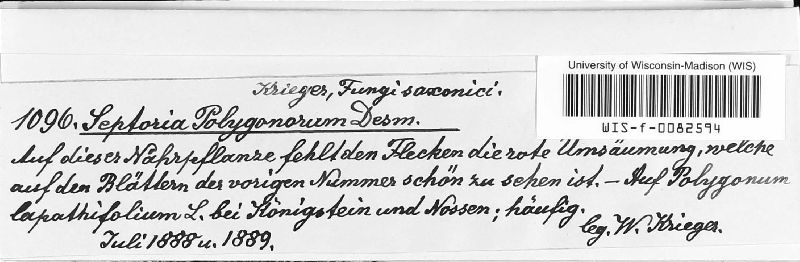 University of Wisconsin-Madison (WIS)
WIS-f-0082594
Krieger, Fungi saxonici.
1096. Septoria Polygonorum Desm.
Auf dieser Nährpflanze fehlt den Flecken die rote Umsäumung, welche
auf den Blättern der vorigen Nummer schön zu sehen ist. – Auf Polygonum
lapathifolium L. bei Königstein und Nossen; häufig.
Juli 1888 u. 1889.
leg. W. Krieger.